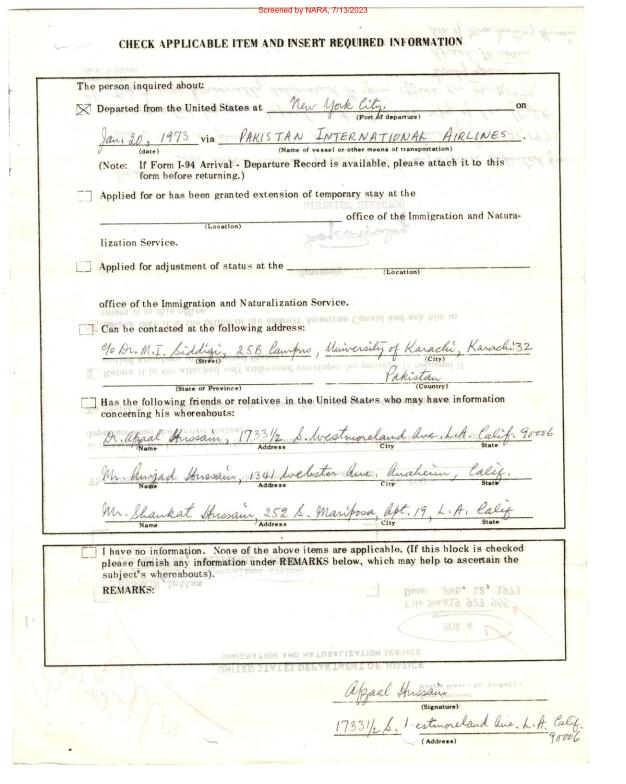 Screened by NARA, 7/13/2023
CHECK APPLICABLE ITEM AND INSERT REQUIRED INFORMATION
The person inquired about:
Departed from the United States at New York City. on
(Port of departure)
Jan. 20, 1973 via PAKISTAN INTERNATIONAL AIRLINES.
(date) (Name of vessel or other means of transportation)
(Note: If Form I-94 Arrival - Departure Record is available, please attach it to this
form before returning.)
Applied for or has been granted extension of temporary stay at the
office of the Immigration and Natura-
(Location)
lization Service.
Applied for adjustment of status at the
(Location)
office of the Immigration and Naturalization Service.
Can be contacted at the following address:
c/o Dr. M.I. Siddiqi, 25B Campus, University of Karachi, Karachi 32
(Street) (City)
Pakistan
(State or Province) (Country)
Has the following friends or relatives in the United States who may have information
concerning his whereabouts:
Dr. Afzaal Hussain, 1733 1/2 S. Westmoreland Ave. L.A. Calif. 90006
Name Address City State
Mr. Amjad Hussain, 1341 Webster Ave. Anaheim, Calif.
Name Address City State
Mr. Shaukat Hussain, 252 S. Mariposa, Apt. 19, L.A. Calif
Name Address City State
I have no information. None of the above items are applicable. (If this block is checked
please furnish any information under REMARKS below, which may help to ascertain the
subject's whereabouts).
REMARKS:
Afzaal Hussain
(Signature)
1733 1/2 S. Westmoreland Ave. L.A. Calif.
90006
(Address)